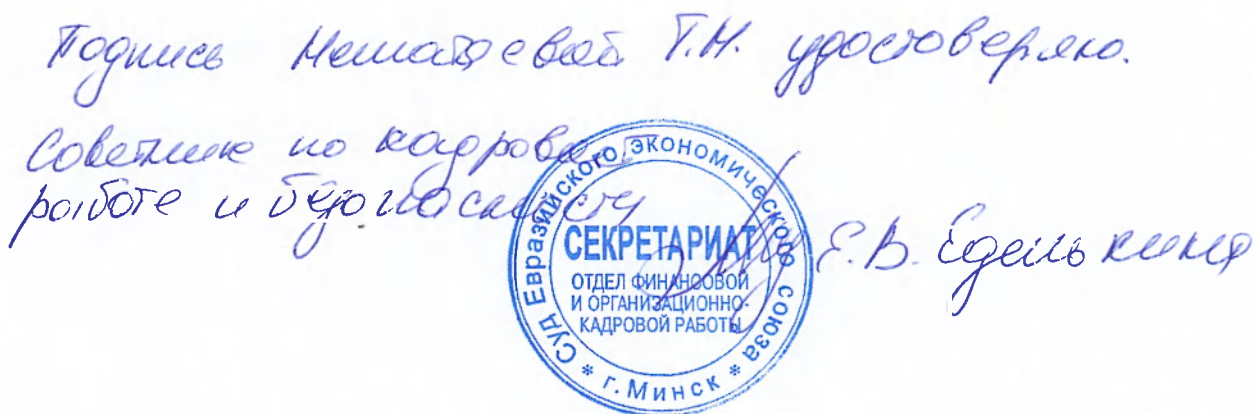 Подпись Нешатаевой Т.Н. удостоверяю.
Советник по кадровой
работе и безопасности
Е.В. Еделькина
Суд Евразийского экономического союза
* г. Минск *
СЕКРЕТАРИАТ
ОТДЕЛ ФИНАНСОВОЙ
И ОРГАНИЗАЦИОННО-
КАДРОВОЙ РАБОТЫ